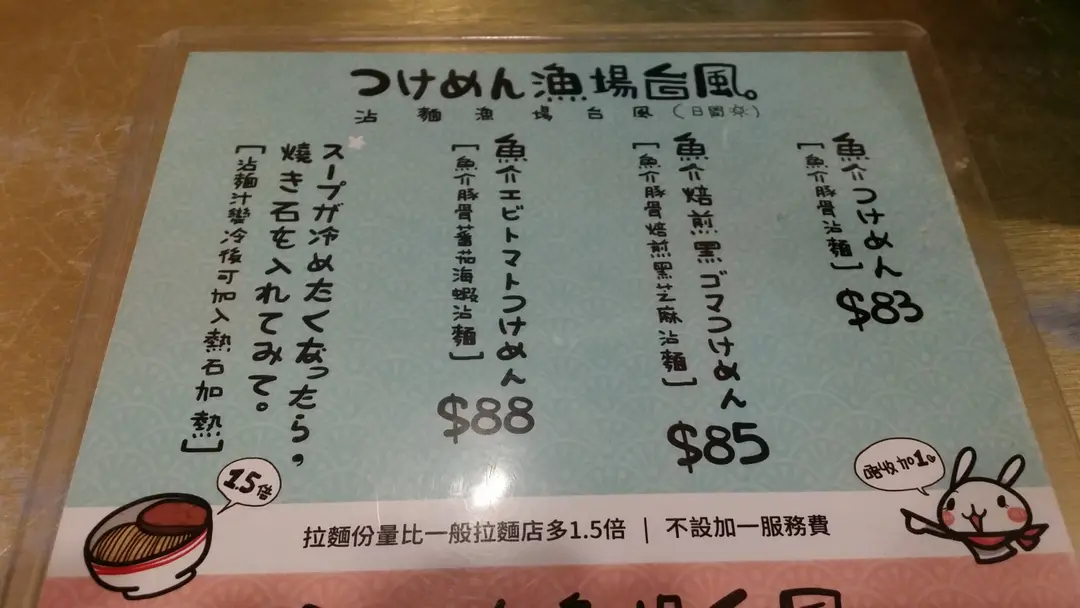 つけめん漁場台風。
沾麵漁場台風(日間奈)
魚介つけめん
[魚介豚骨沾麵]
$83
魚介焙煎黒ゴマつけめん
[魚介豚骨焙煎黑芝麻沾麵]
$85
魚介エビトマトつけめん
[魚介豚骨蕃茄海蝦沾麵]
$88
スープが冷めたくなったら。
焼き石を入れてみて。
[沾麵汁變冷後可加入熱石加熱]
1.5倍
唔收加1。
拉麵份量比一般拉麵店多1.5倍 | 不設加一服務費